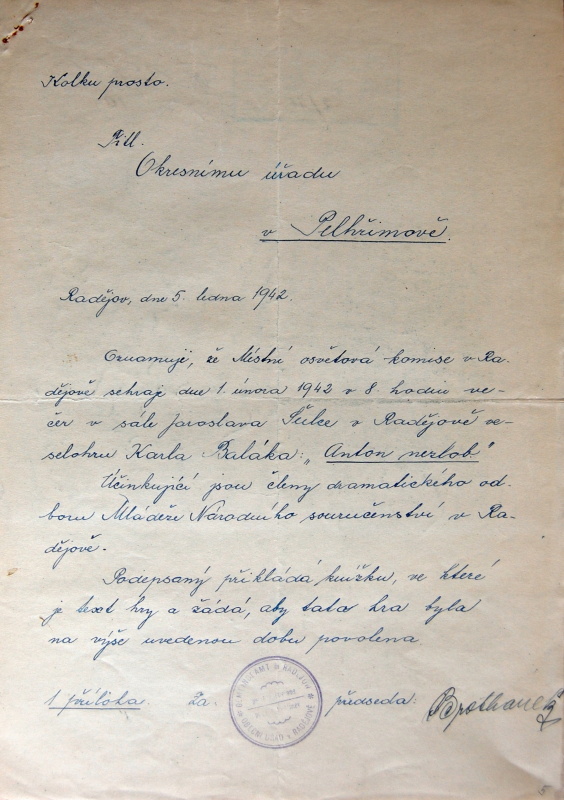 Kolku prosto.
Okresnímu úřadu
v Pelhřimově.
Radějov, dne 5. ledna 1942.
Oznamuji, že Místní osvětová komise v Ra-
dějově sehraje dne 1. února 1942 v 8. hodin ve-
čer v sále Jaroslava Šulce v Radějově ve-
selohru Karla Baláka: „Anton nezlob"
Účinkující jsou členy dramatického od-
boru Mládeže Národního souručenství v Ra-
dějově.
Podepsaný přikládá knížku, ve které
je text hry a žádá, aby tato hra byla
na výše uvedenou dobu povolena
1 příloha. Za předseda:
5